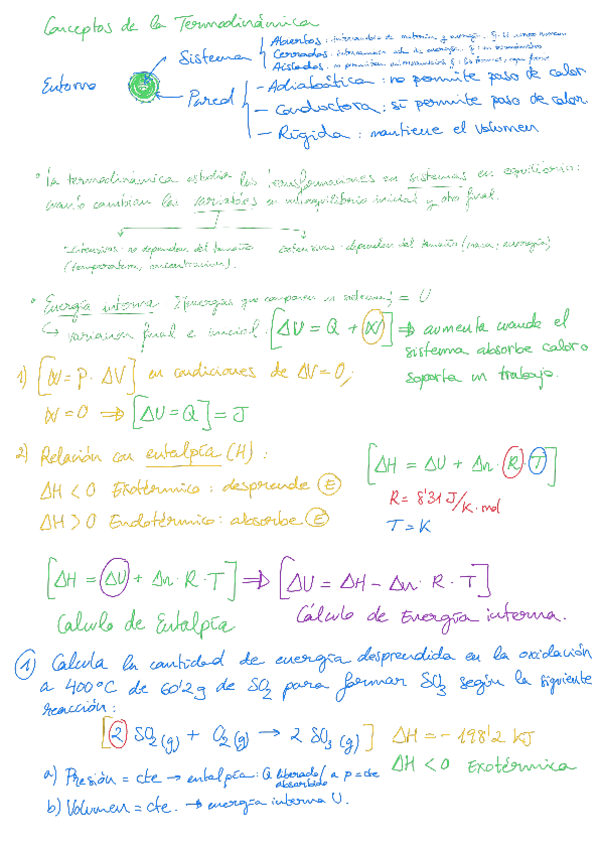 Conceptos de la Termodinámica
Abiertos: intercambio de materia y energía.
Sistema Cerrados: intercambia solo energía.
Aislados: no permiten
Entorno
Pared - Adiabática: no permite paso de calor
- Conductora: sí permite paso de calor.
- Rígida: mantiene el volumen
° La termodinámica estudia las transformaciones en sistemas en equilibrio:
cuando cambian las variables en un equilibrio inicial y otro final.
Intensivas: no dependen del tamaño Extensivas: dependen del tamaño (masa, energía)
(temperatura, concentración).
° Energía interna = U
↳ variación final e inicial. [ΔU = Q + W] ⇒ aumenta cuando el
sistema absorbe calor o
soporta un trabajo.
1) [W = P · ΔV] en condiciones de ΔV = 0;
W = 0 ⇒ [ΔU = Q] = J
2) Relación con entalpía (H):
[ΔH = ΔU + Δn · R · T]
ΔH < 0 Exotérmico: desprende E
R = 8'31 J/K·mol
ΔH > 0 Endotérmico: absorbe E
T = K
[ΔH = ΔU + Δn · R · T] ⇒ [ΔU = ΔH - Δn · R · T]
Calculo de Entalpía Cálculo de Energía interna.
1) Calcula la cantidad de energía desprendida en la oxidación
a 400°C de 60'2g de SO2 para formar SO3 según la siguiente
reacción:
[2 SO2 (g) + O2 (g) → 2 SO3 (g)] ΔH = - 198'2 KJ
ΔH < 0 Exotérmica
a) Presión = cte → entalpía: Q liberado/absorbido a p = cte
b) Volumen = cte. → energía interna U.